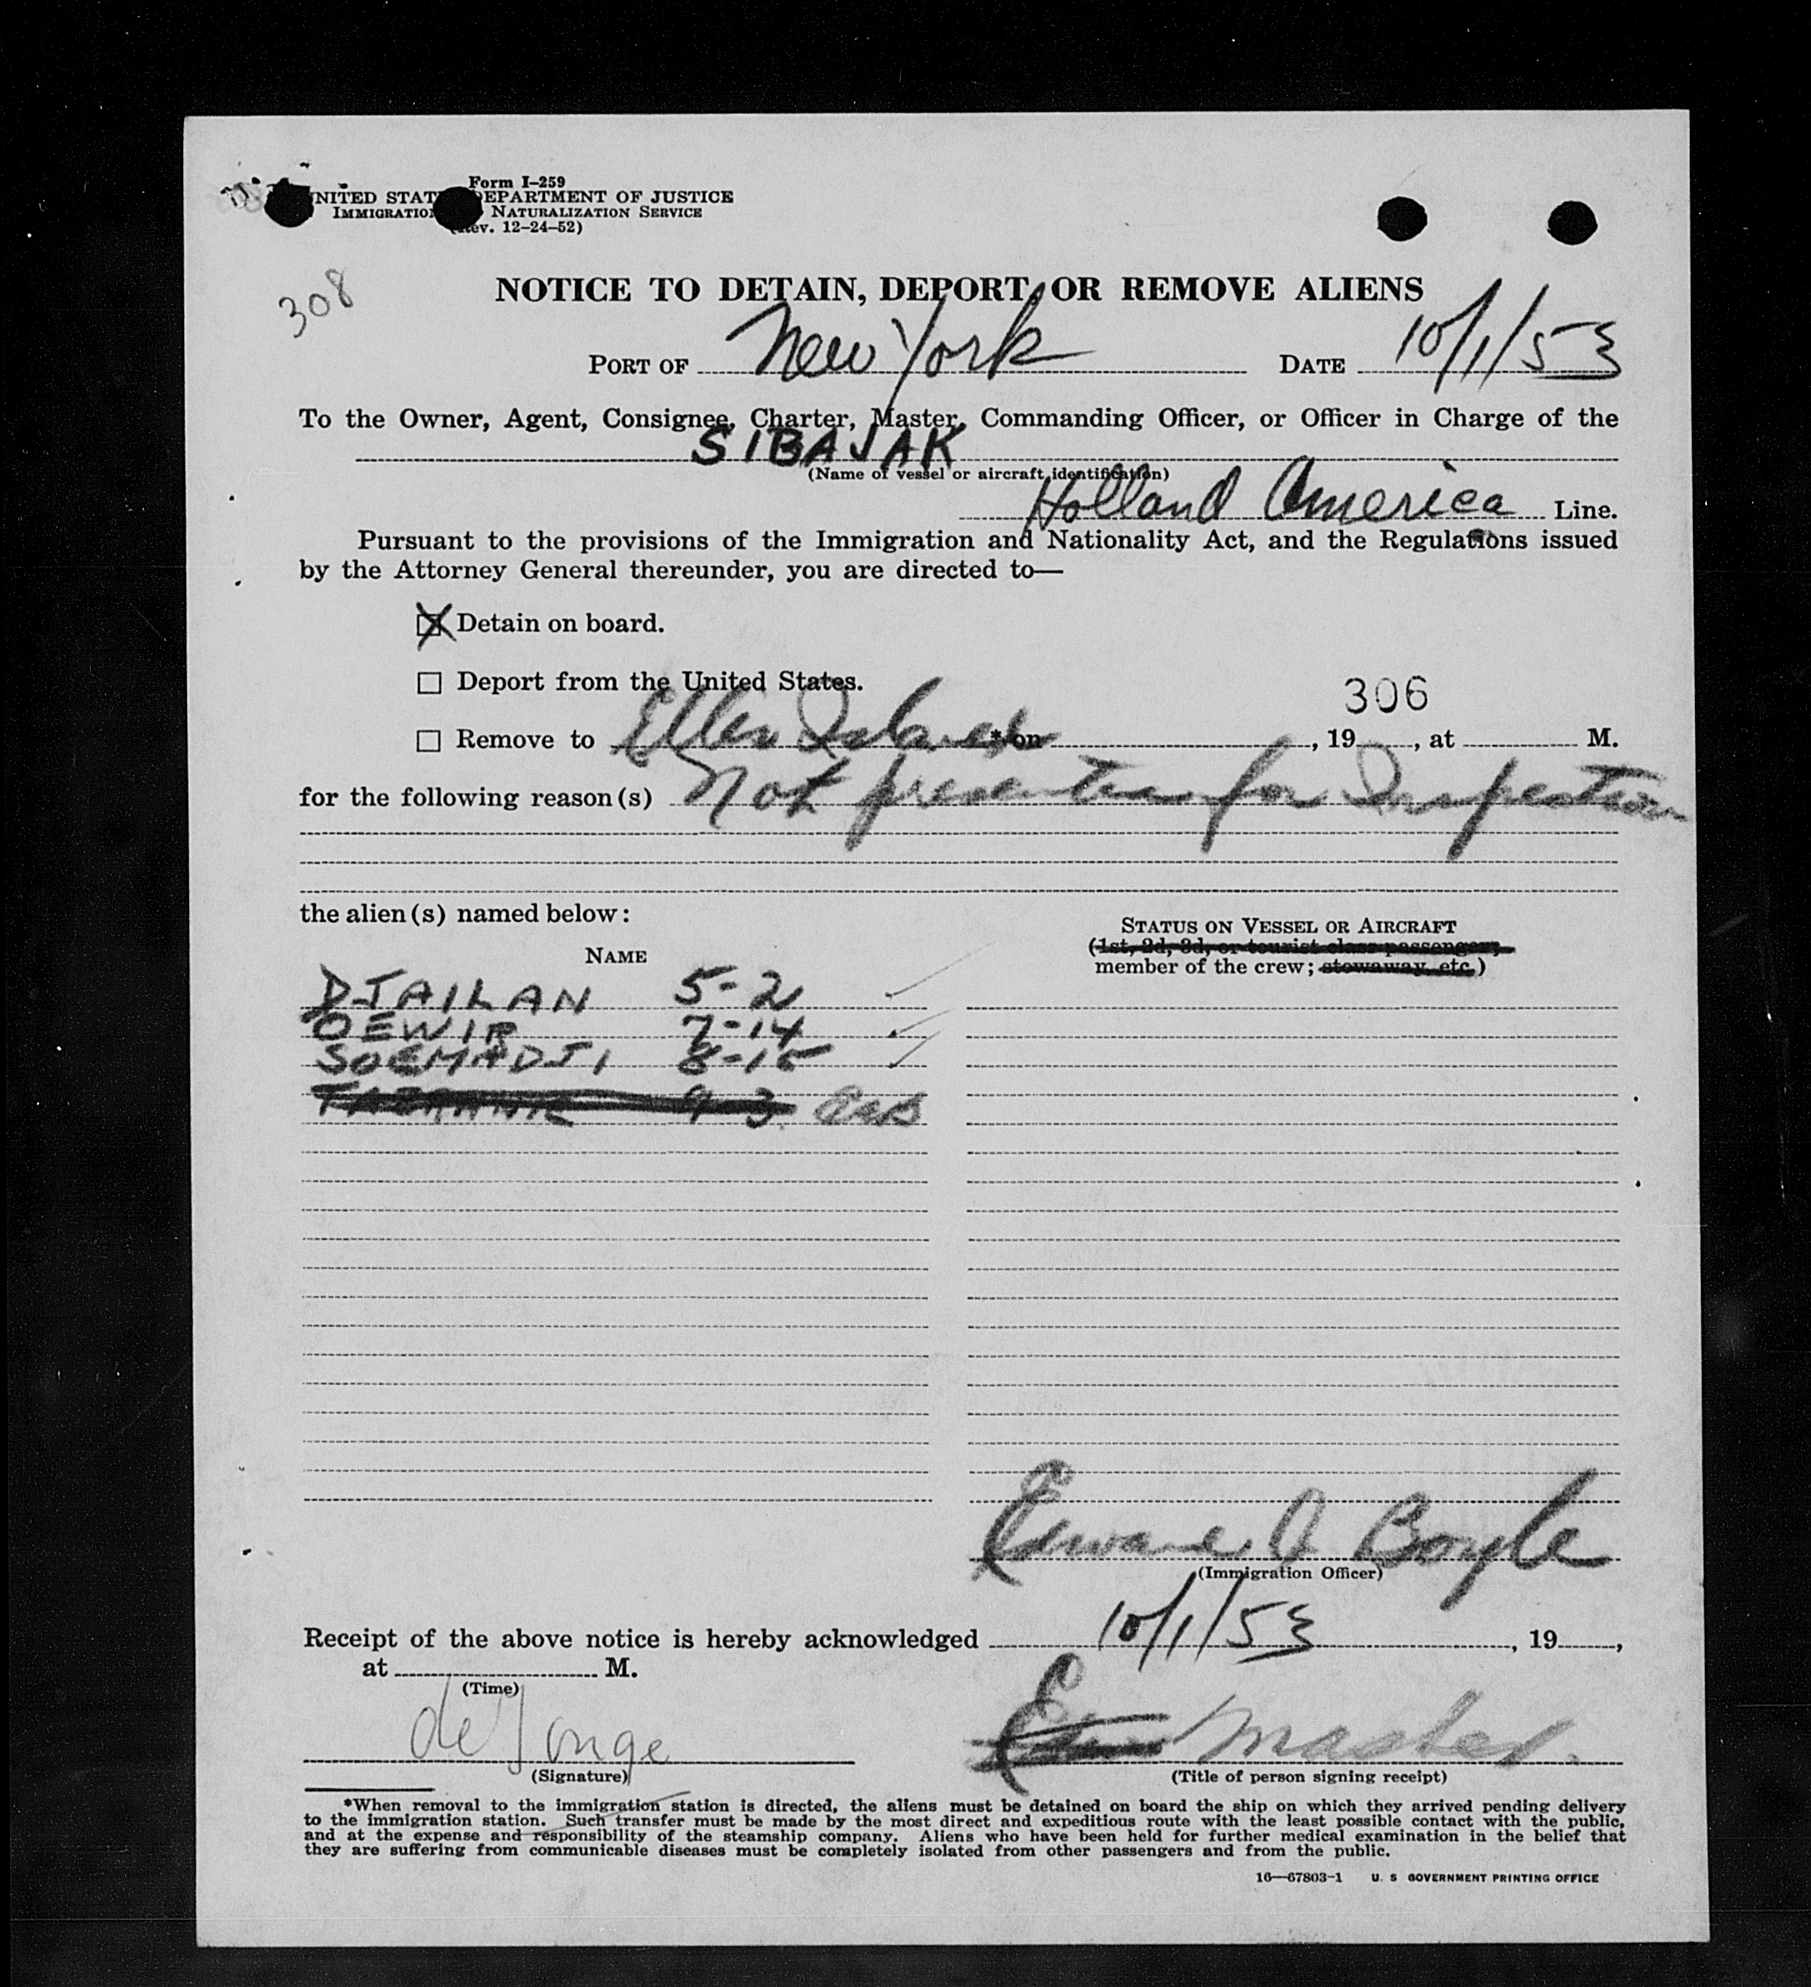 Form I-259
UNITED STATES DEPARTMENT OF JUSTICE
IMMIGRATION NATURALIZATION SERVICE
(Rev. 12-24-52)
308
NOTICE TO DETAIN, DEPORT, OR REMOVE ALIENS
PORT OF New York DATE 10/1/53
To the Owner, Agent, Consignee, Charter, Master, Commanding Officer, or Officer in Charge of the
SIBAJAK
(Name of vessel or aircraft identification)
Holland America Line.
Pursuant to the provisions of the Immigration and Nationality Act, and the Regulations issued
by the Attorney General thereunder, you are directed to—
☒ Detain on board.
☐ Deport from the United States.
306
☐ Remove to Ellis Island * on , 19 , at M.
for the following reason(s) Not presented for Inspection
the alien(s) named below:
STATUS ON VESSEL OR AIRCRAFT
(1st, 2d, 3d, or tourist class passenger,
NAME
member of the crew; stowaway, etc.)
DJAILAN 5-2
DEWIR 7-14
SOEMADJI 8-15
9-3
Edward A Boyle
(Immigration Officer)
Receipt of the above notice is hereby acknowledged 10/1/53 , 19 ,
at M.
(Time)
de Jonge Master.
(Signature) (Title of person signing receipt)
*When removal to the immigration station is directed, the aliens must be detained on board the ship on which they arrived pending delivery
to the immigration station. Such transfer must be made by the most direct and expeditious route with the least possible contact with the public,
and at the expense and responsibility of the steamship company. Aliens who have been held for further medical examination in the belief that
they are suffering from communicable diseases must be completely isolated from other passengers and from the public.
16—67803-1 U. S GOVERNMENT PRINTING OFFICE